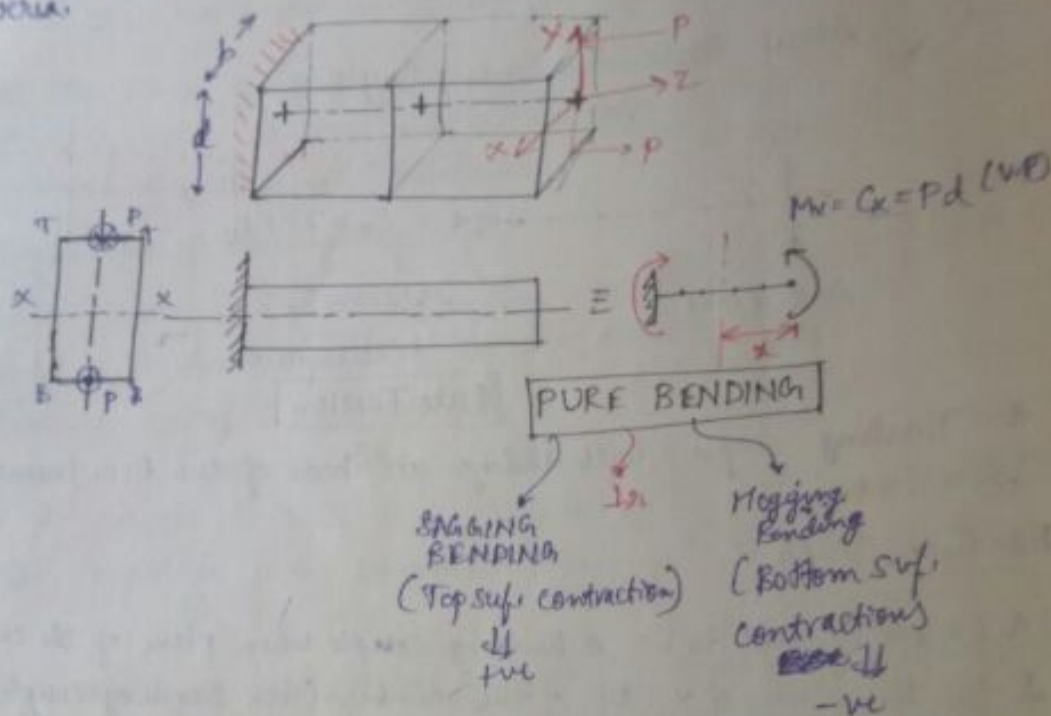 b
d
Y
P
Z
X
P
Mx = Cx = Pd
T P T
X X
B P B
≡
x
PURE BENDING
SAGGING
BENDING
(Top suf. contraction)
⇓
+ve
Hogging
Bending
(Bottom suf.
contractions)
⇓
-ve